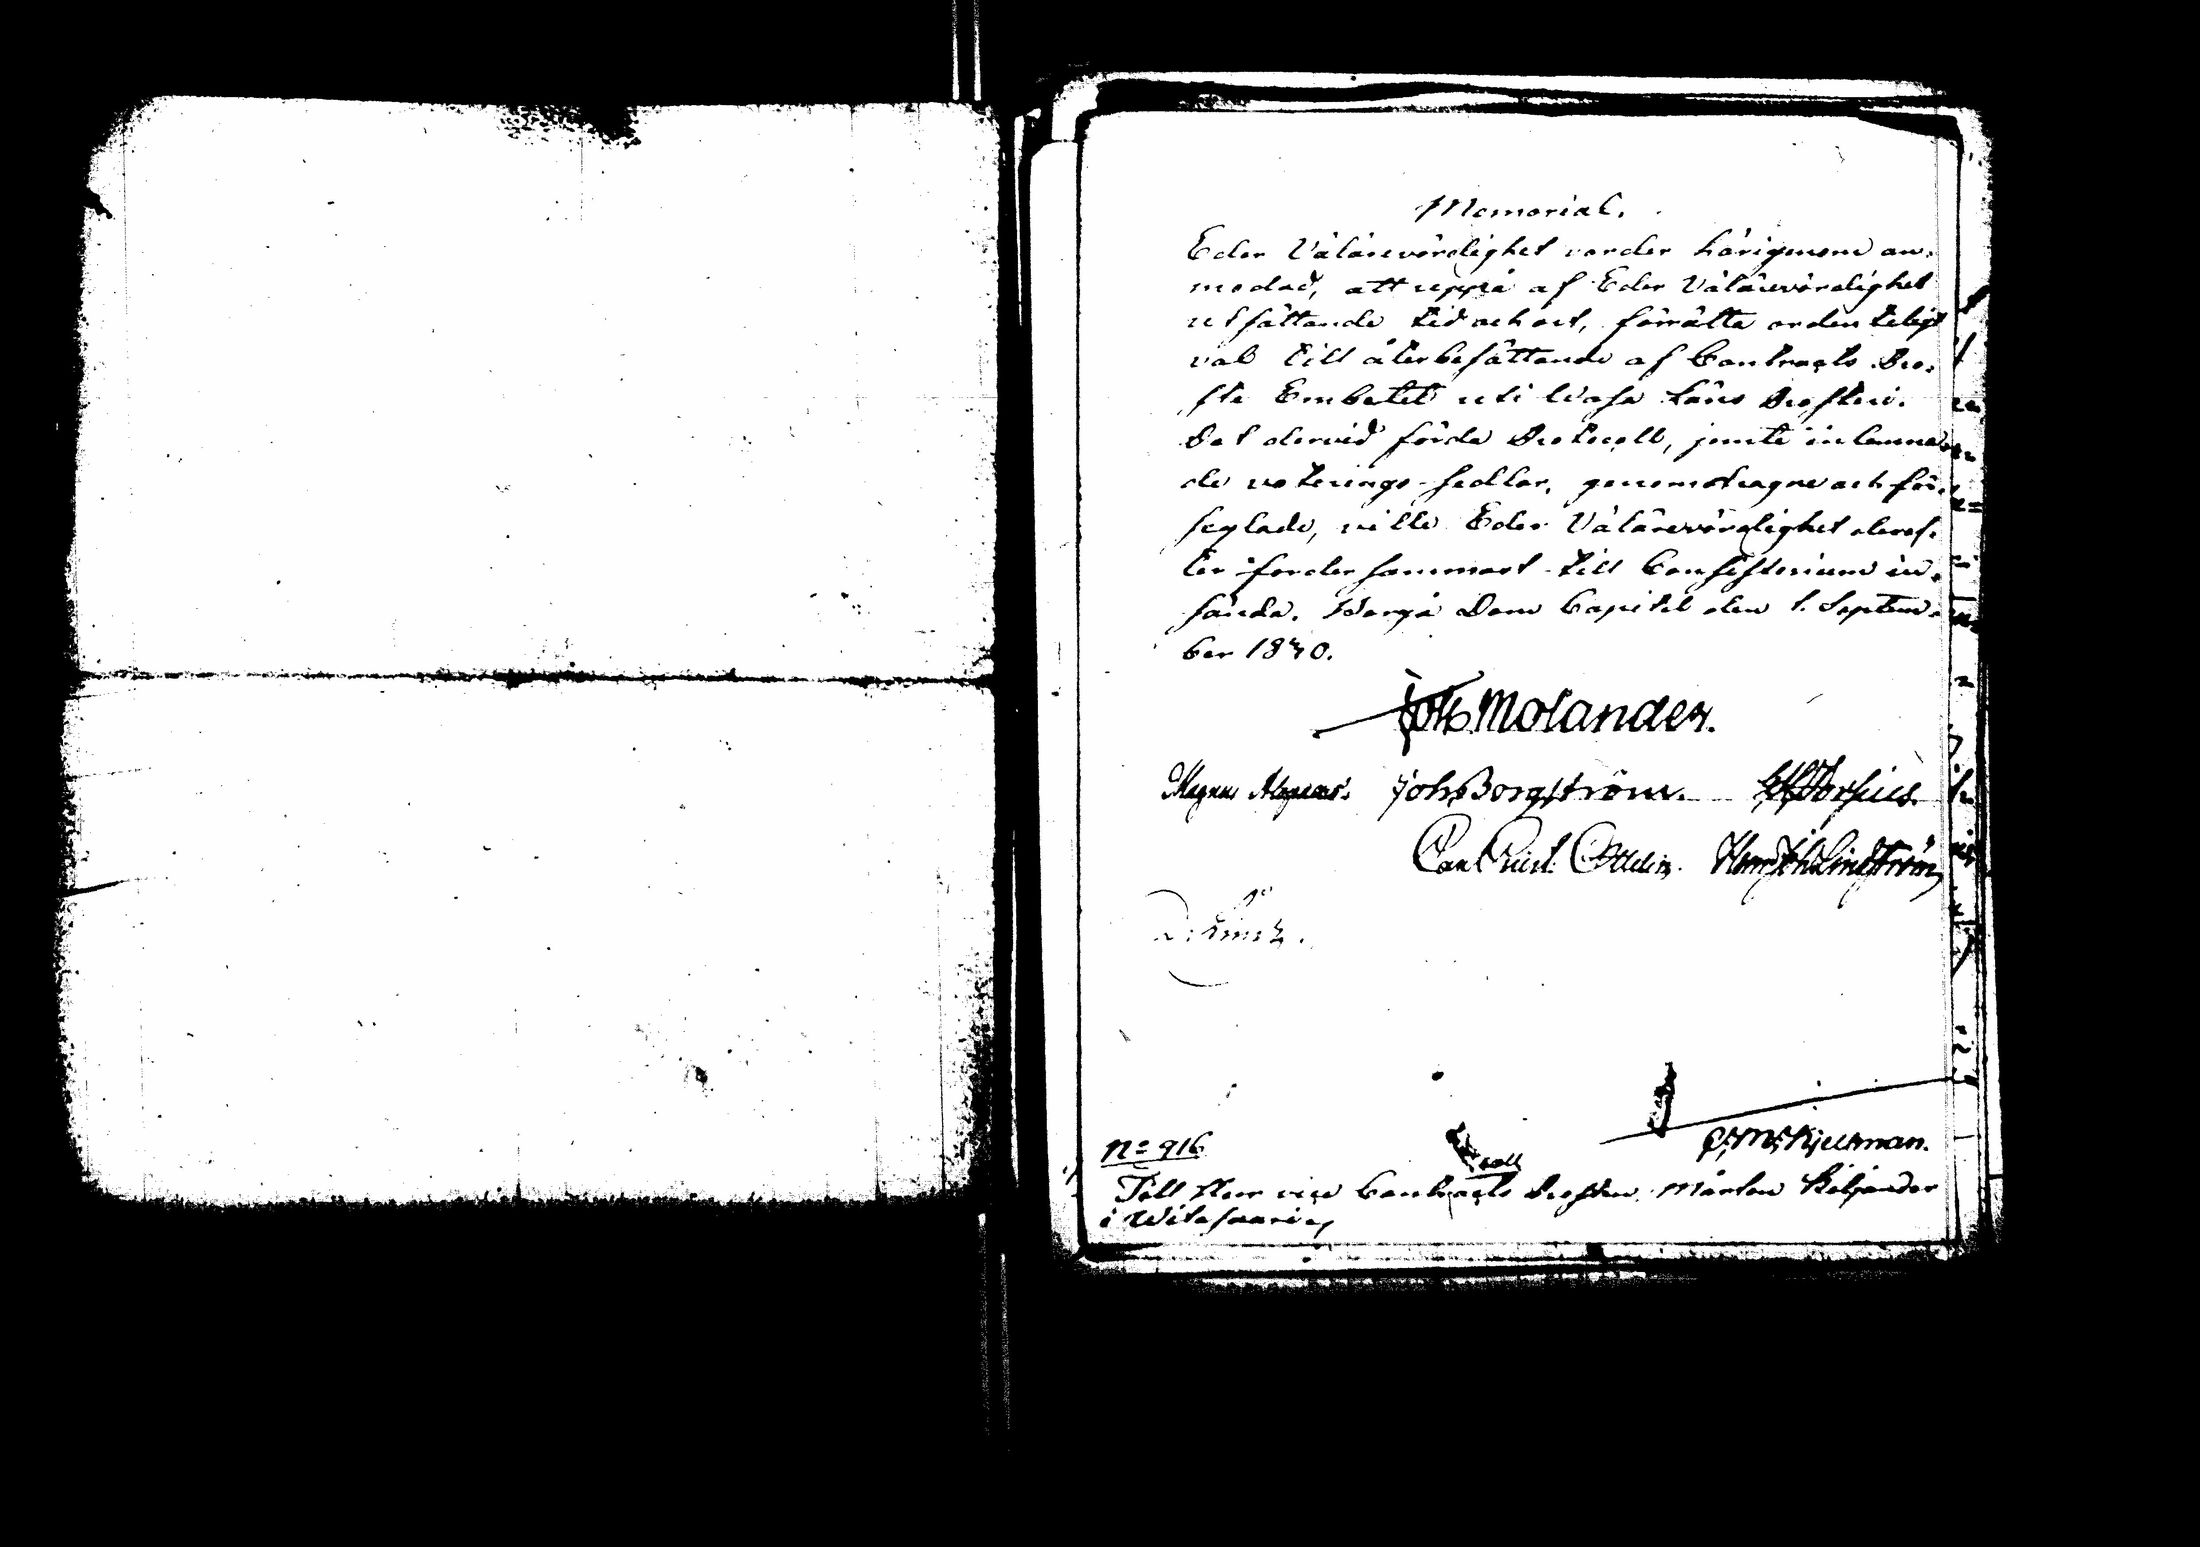 Memorial.
Eder Välärevördighet varder härigenom an-
modad, att uppå af Eder Välärevördighet
utsättande tid och ort, förrätta ordenteligt
val till återbesättande af Contracts Pro-
ste Embetet uti Wasa Läns Prosteri.
Det dervid förda Protocoll, jemte inlemna-
de voterings-sedlar, genomdragne och för-
seglade, ville Eder Välärevördighet deref-
ter fordersammast till Consistorium in-
sända. Borgå Dom Capitel den 1. Septem-
ber 1830.
Joh. Molander.
Magnus Alopaeus. Joh. Borgström.
Carl Ottelin. Lindström
Kjellman.
No 916
Till Herr vice Contracts Prosten Mårten
i Witasaari